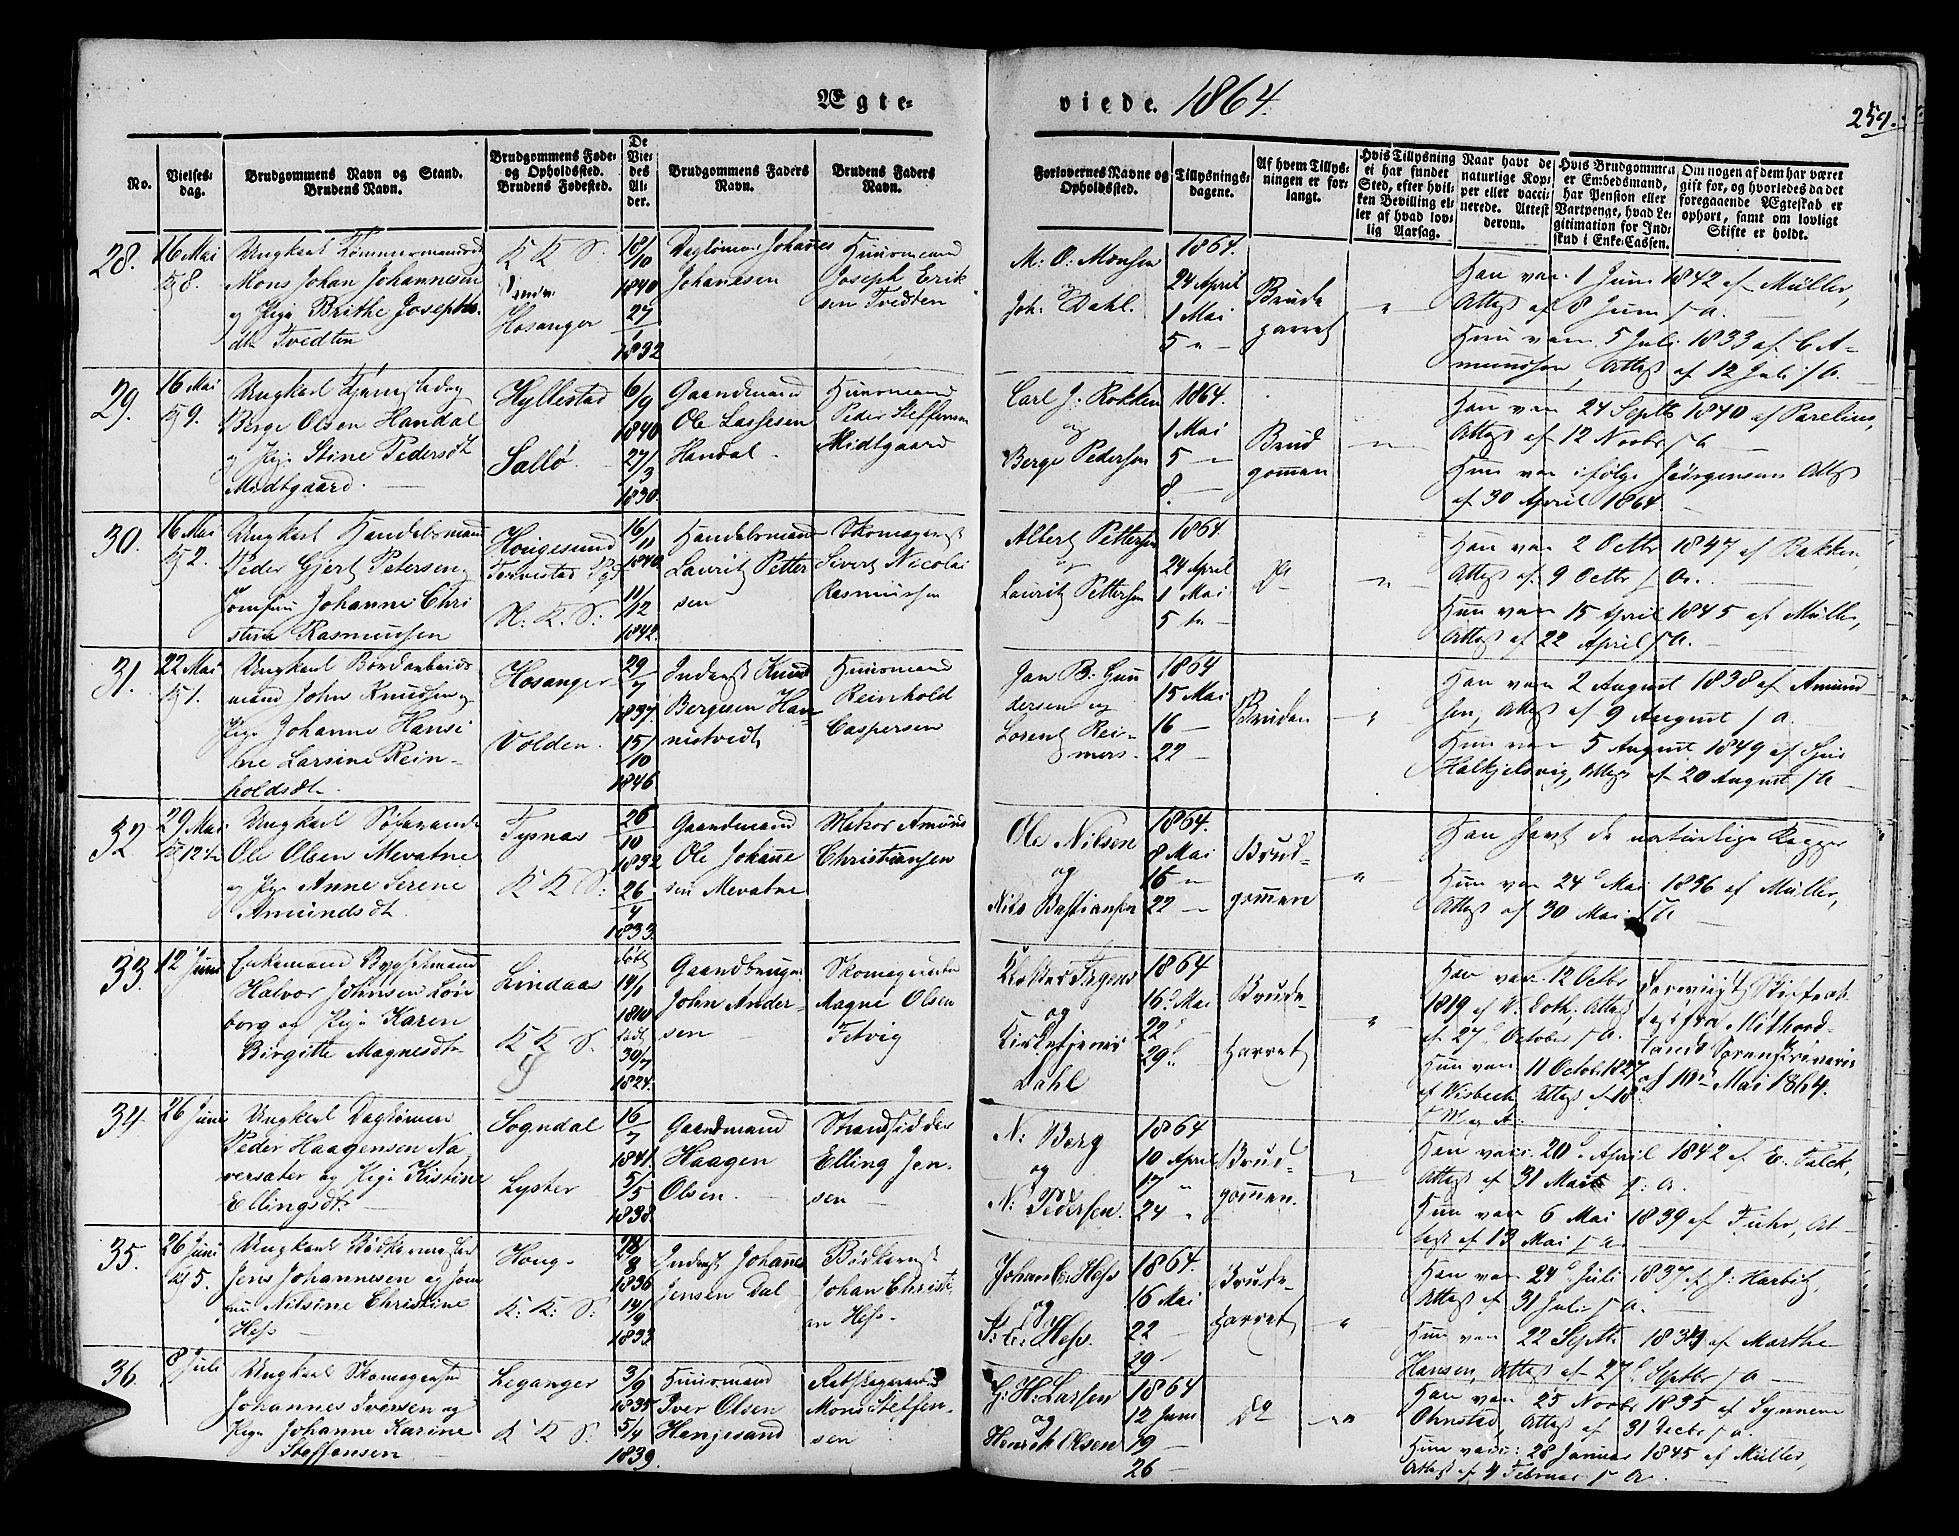 Ægte-
viede. 1864.
259.
No.
Vielses-
dag.
Brudgommens Navn og Stand.
Brudens Navn.
Brudgommens Føde-
og Opholdssted.
Brudens Fødested.
De
Vie-
des
Al-
der.
Brudgommens Faders
Navn.
Brudens Faders
Navn.
Forlovernes Navne og
Opholdssted.
Tillysnings-
dagene.
Af hvem Tillys-
ningen er for-
langt.
Hvis Tillysning
ei har fundet
Sted, efter hvil-
ken Bevilling el-
ler af hvad lov-
lig Aarsag.
Naar havt de
naturlige Kop-
per eller vacci-
nerede. Attest
derom.
Hvis Brudgommen
er Embedsmand,
har Pension eller
Vartpenge, hvad Le-
gitimation for Ind-
skud i Enke-Cassen.
Om nogen af dem har været
gift før, og hvorledes da det
foregaaende Ægteskab er
ophørt, samt om lovligt
Skifte er holdt.
28.
16 Mai
Kl 8.
Ungkarl Tømmermandsd
Mons Johan Johannesen
og Pige Brithe Josephs-
dtr Tvedten
K K S.
Hosanger
18/10
1840
27/1
1832
Dagløner Johanes
Johanesen
Huusmand
Joseph Erik
sen Tvedten
M: O: Monsen
og
Joh: Dahl.
1864.
24 April
1 Mai
5 "
Brude
parret
"
Han vac. 1 Juni 1842 af Müller,
Attest af 8 Juni s A.
Hun vac. 5 Juli 1833 af C A-
mundsen, Attest af 12 Juli s A.
29.
16 Mai
Kl 9.
Ungkarl Tjenestedrg
Berge Olsen Handal
og Pige Stine Pedersdt
Midtgaard.
Hyllestad
Sollø
6/9
1840
27/3
1830.
Gaardmand
Ole Lassesen
Handal
Huusmand
Peder Steffensen
Midtgaard
Carl J. Rokken
og
Berge Pedersen
1864.
1 Mai
5 "
8. -
Brud
gommen
"
Han vac 24 Septb 1840 af Parelius,
Attest af 12 Novbr s A
Hun vac ifølge Jørgensens Attest
af 30 April 1864.
30.
16 Mai
Kl 2.
Ungkarl Handelsmand
Peder Gjert Petersen og
Jomfru Johanne Chri
stine Rasmussen
Hougesund
Torvestad Pgd
N. K. S:
16/11
1840
11/12
1842.
Handelsmand
Lauritz Petter
sen
Skomagermst
Sivert Nicolai
Rasmussen
Albert Pettersen
og
Lauritz Pettersen
1864.
24 April
1 Mai
5 te
Do
"
Han vac 2 Octbr 1847 af Bakken,
Attest af 9 Octbr s A.
Hun vac 15 April 1845 af Müller,
Attest af 22 April s A.
31.
22 Mai
Kl 1.
Ungkarl Bordarbeids
mand John Knudsen og
Pige Johanne Hansi
ne Larsine Rein-
holdsdt.
Hosanger
Volden
29/7
1837
15/10
1846
Inderst Knud
Bergesen Han-
nestvedt
Huusmand
Reinhold
Caspersen
Jan B: Gun
dersen og
Lorentz Rei-
mers.
1864
15 Mai
16 -
22 -
Bruden
"
Han vac 2 August 1838 af Amund
sen, Attest af 9 August s A.
Hun vac 5 August 1849 af
Halkjelsvig, Attest af 20 August s A
32.
29 Mai
Kl 12 1/2
Ungkarl Søfarende
Ole Olsen Mevatne
og Pige Anne Serene
Amundsdt.
Tysnæs
K K S:
26/10
1832
26/4
1833.
Gaardmand
Ole Johanne
sen Mevatne
Matros Amund
Christiansen
Ole Nilsen
og
Nils Bastiansen
1864.
8 Mai
15 "
22 -
Brud-
gommen
"
Han havt de naturlige Kopper
Hun vac 24d Mai 1836 af Müller,
Attest af 30 Mai s A
33.
12 Juni
Enkemand Bygselmand
Halvor Johnsen Løn
borg og Pige Karen
Birgitte Magnesdtr
Lindaas
K K S.
døbt
14/1
1810
født
30/7
1824.
Gaardbruger
John Ander-
sen
Skomagermst
Magne Olsen
Tetvig
Klokker Irgens
og
Kirketjener
Dahl
1864
16d Mai
22d
29d
Brude
parret
"
Han vac: 12 Octbr
1819 af W. Doth: Attest
af 27d October s A.
Hun vac 11 Octbr. 1827
af Wisbech, Attest af 18d
Skifteat-
test fra Nøthord-
lands Sorenskriveri
af 10de Mai 1864.
34.
26 Juni
Ungkarl Dagløner
Peder Haagensen Na-
versater og Pige Kistine
Ellingsdtr
Sogndal
Lyster
16/7
1841.
5/5
1838.
Gaardmand
Haagen
Olsen.
Strandsidder
Elling Jen-
sen
N: Berg
og
N: Pedersen.
1864
10 April
17 "
24 "
Brud-
gommen.
"
Han vac: 20d April 1842 af E. Falck,
Attest af 31 Marts s: A.
Hun vac 6 Mai 1839 af Fuhr, At-
test af 13 Mai s A
35.
26 Juni
Kl 5.
Ungkarl Bødkermester
Jens Johannesen og Jom
fru Nilsine Christine
Hess
Houg-
K: K: S:
28/8
1836
14/9
1833
Inderst Johannes
Jensen Dal
Bødkermst
Johan Christi-
an Hess.
Johan C: Hess
og
S: C: Hess.
1864.
16 Mai
22 -
29 -
Brude-
parret
"
Han vac 24d Juli 1837 af J: Harbitz,
Attest af 31 Juli s A.
Hun vac 22 Septb 1834 af Marthe
Hansen, Attest af 27d Septbr s A
36.
8 Juli
Ungkarl Skomagersvd
Johannes Iversen og
Pige Johanne Karine
Steffensen
Leganger
K K S.
3/9
1835
5/4
1839.
Huusmand
Iver Olsen
Henjesand
Mons Steffen-
sen
G: H: Larsen
og
Henrik Olsen
1864
12 Juni
19 -
26 -
Do
"
Han vac 25 Novbr 1835 af Synneve
Ohnstad, Attest af 31 Decbr s A.
Hun vac: 28 Januar 1845 af Müller,
Attest af 4 Februar s A.